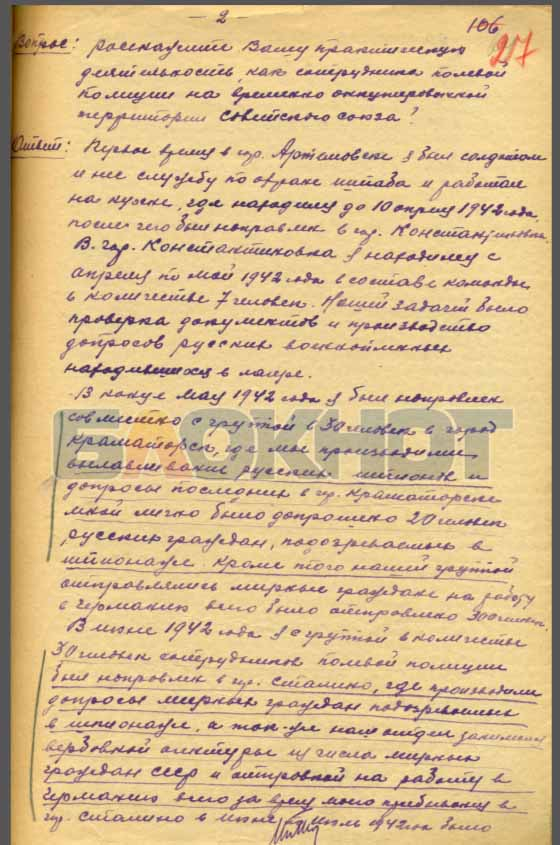 - 2 -
106
217
Вопрос: Расскажите Вашу практическую
деятельность, как сотрудника полевой
полиции на временно оккупированной
территории Советского союза?
Ответ: Первое время в гор. Артемовске я был солдатом
и нес службу по охране штаба и работал
на кухне, где находился до 10 апреля 1942 года,
после чего был направлен в гор. Константиновка.
В гор. Константиновка я находился с
апреля по май 1942 года в составе команды
в количестве 7 человек. Нашей задачей было
проверка документов и производство
допросов русских военнопленных
находившихся в лагере.
В конце мая 1942 года я был направлен
совместно с группой в 30 человек в город
Краматорск, где мы производили
вылавливание русских шпионов и
допросы последних в гр. Краматорске
мной лично было допрошено 20 человек
русских граждан, подозреваемых в
шпионаже. Кроме того нашей группой
отправлялись мирные граждане на работу
в Германию всего было отправлено 300 человек.
В июне 1942 года я с группой в количестве
30 человек сотрудников полевой полиции
был направлен в гр. Сталино, где производили
допросы мирных граждан подозреваемых
в шпионаже, а так-же наш отдел занимался
вербовкой агентуры из числа мирных
граждан СССР и отправкой на работу в
Германию всего за время моего пребывания в
гр. Сталино в июне июль 1942 года было
БЛОКНОТ